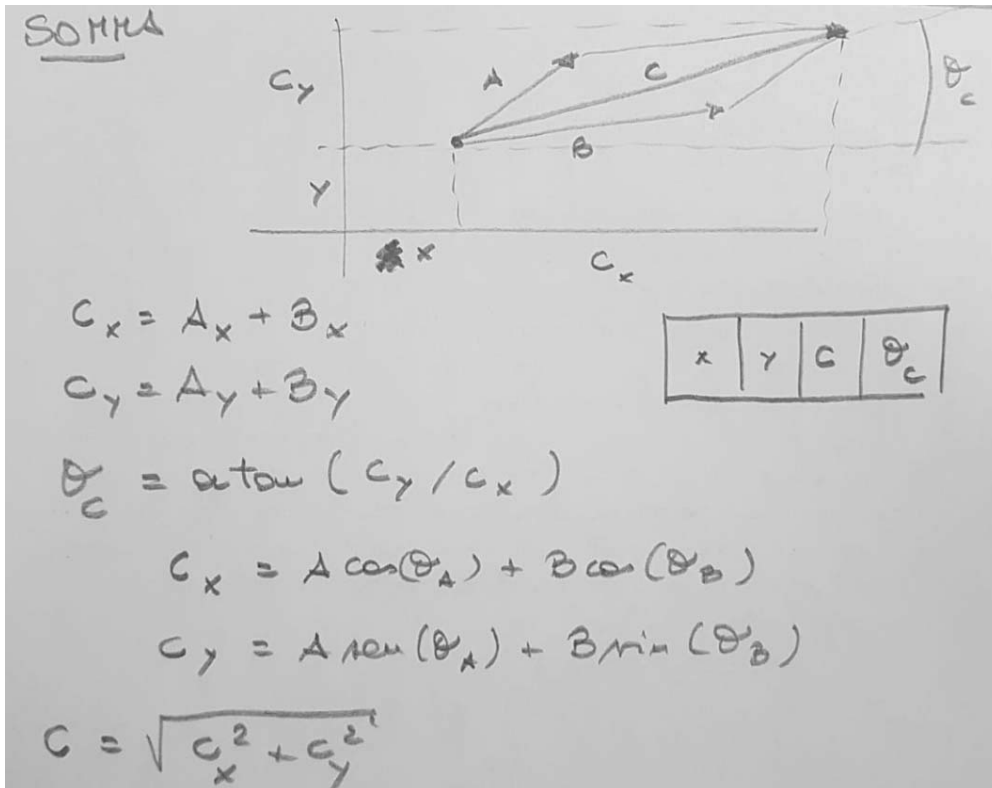 SOMMA
C_y
A
C
θ_c
B
y
x
C_x
C_x = A_x + B_x
C_y = A_y + B_y
x y C θ_c
θ_c = atan (C_y / C_x)
C_x = A cos(θ_A) + B cos(θ_B)
C_y = A sen(θ_A) + B sin(θ_B)
C = √(C_x² + C_y²)